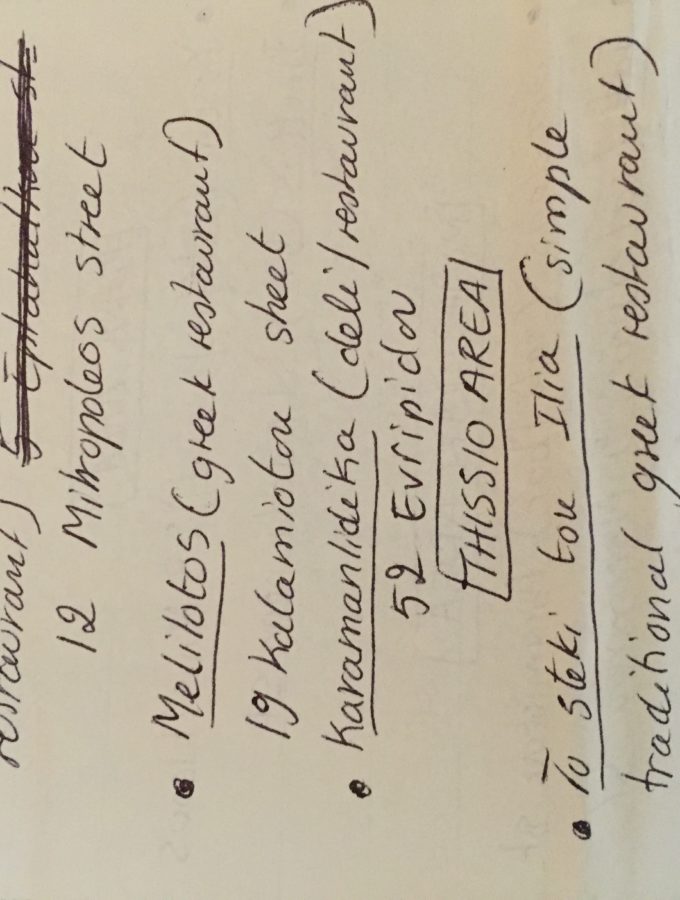 restaurant)
12 Mitropoleos street
• Melilotos (greek restaurant)
19 Kalamiotou street
• Karamanlidika (deli/restaurant)
52 Evripidou
THISSIO AREA
• To steki tou Ilia (simple
traditional greek restaurant)